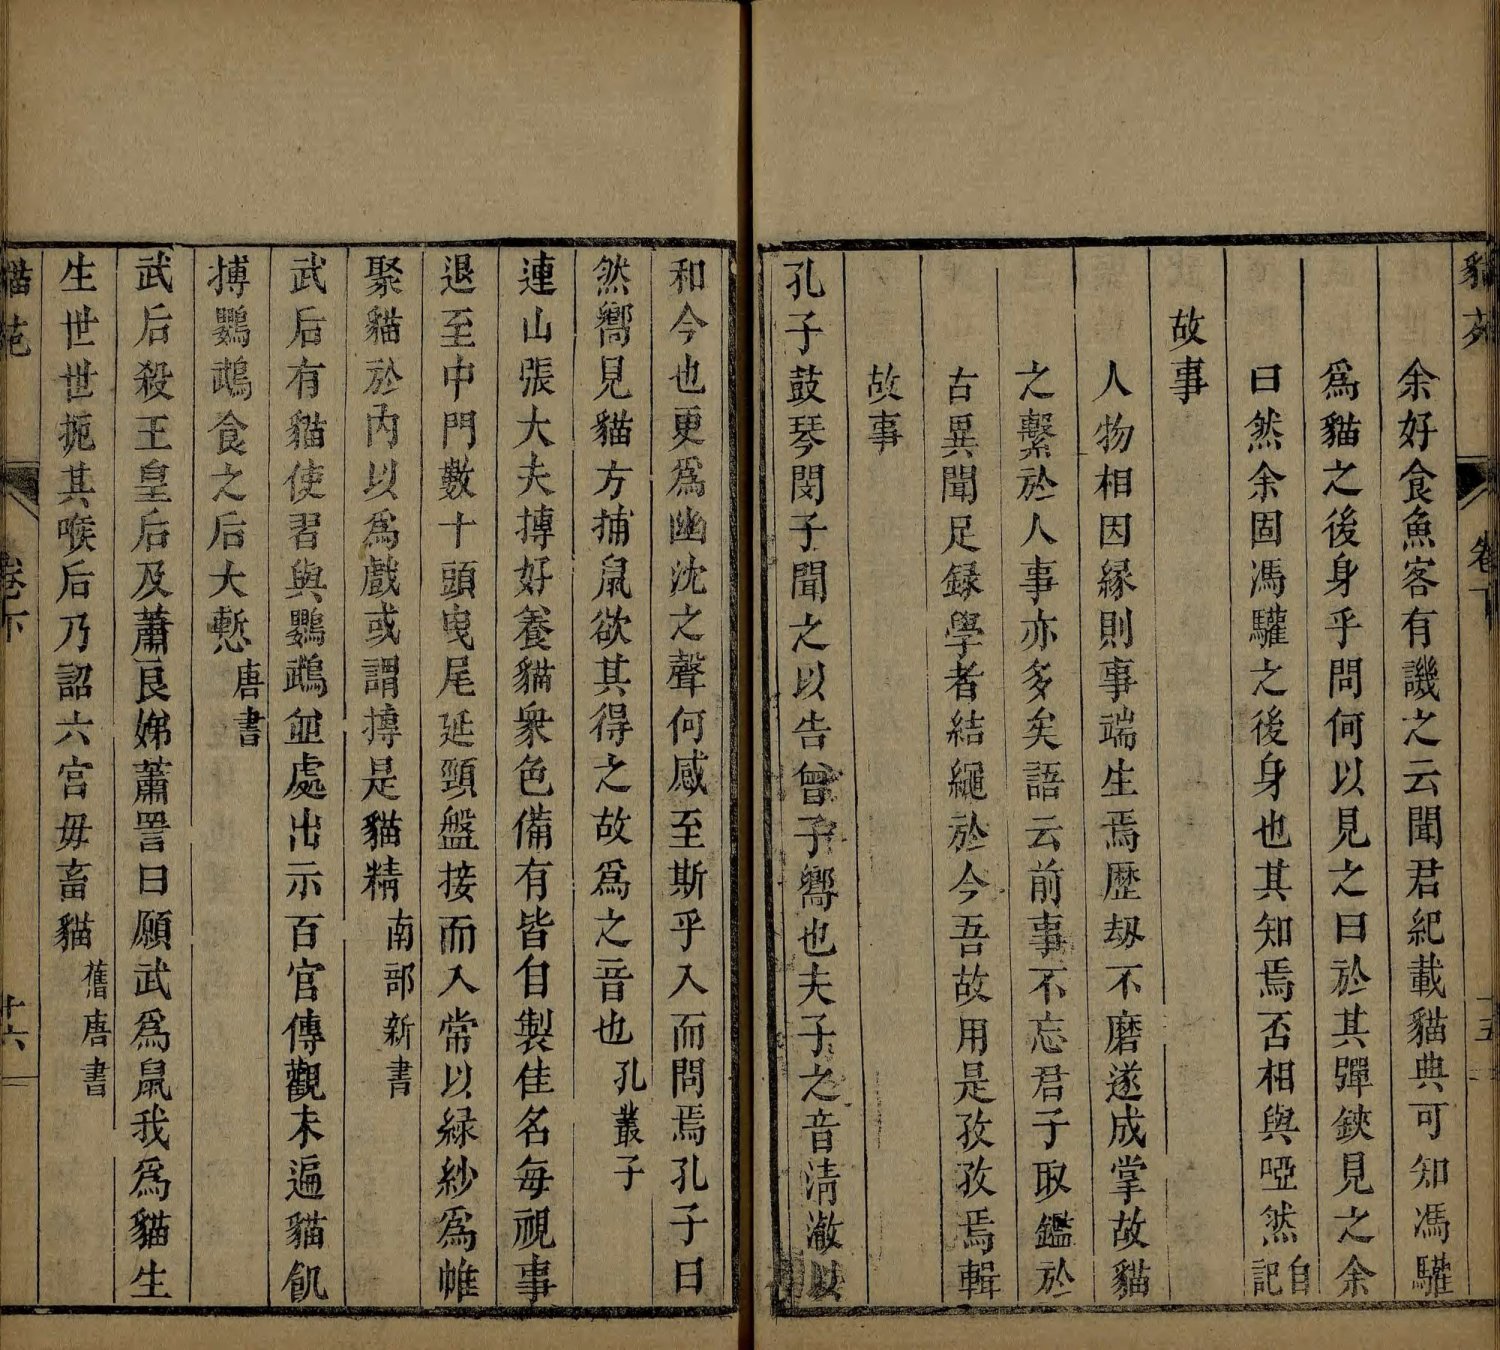 貓苑 卷下 十五
余好食魚客有譏之云聞君紀載貓典可知馮驩
爲貓之後身乎問何以見之曰於其彈鋏見之余
曰然余固馮驩之後身也其知焉否相與啞然自記
故事
人物相因緣則事端生焉歷刼不磨遂成掌故貓
之繫於人事亦多矣語云前事不忘君子取鑑於
古異聞足録學者結繩於今吾故用是孜孜焉輯
故事
孔子鼓琴閔子聞之以告曾子嚮也夫子之音清澈以
和今也更爲幽沈之聲何感至斯乎入而問焉孔子曰
然嚮見貓方捕鼠欲其得之故爲之音也孔叢子
連山張大夫摶好養貓衆色備有皆自製佳名每視事
退至中門數十頭曳尾延頸盤接而入常以緑紗爲帷
聚貓於內以爲戲或謂摶是貓精南部新書
武后有貓使習與鸚鵡並處出示百官傳觀未遍貓飢
搏鸚鵡食之后大慙唐書
武后殺王皇后及蕭良娣蕭詈曰願武爲鼠我爲貓生
生世世扼其喉后乃詔六宫毋畜貓舊唐書
貓苑 卷下 十六